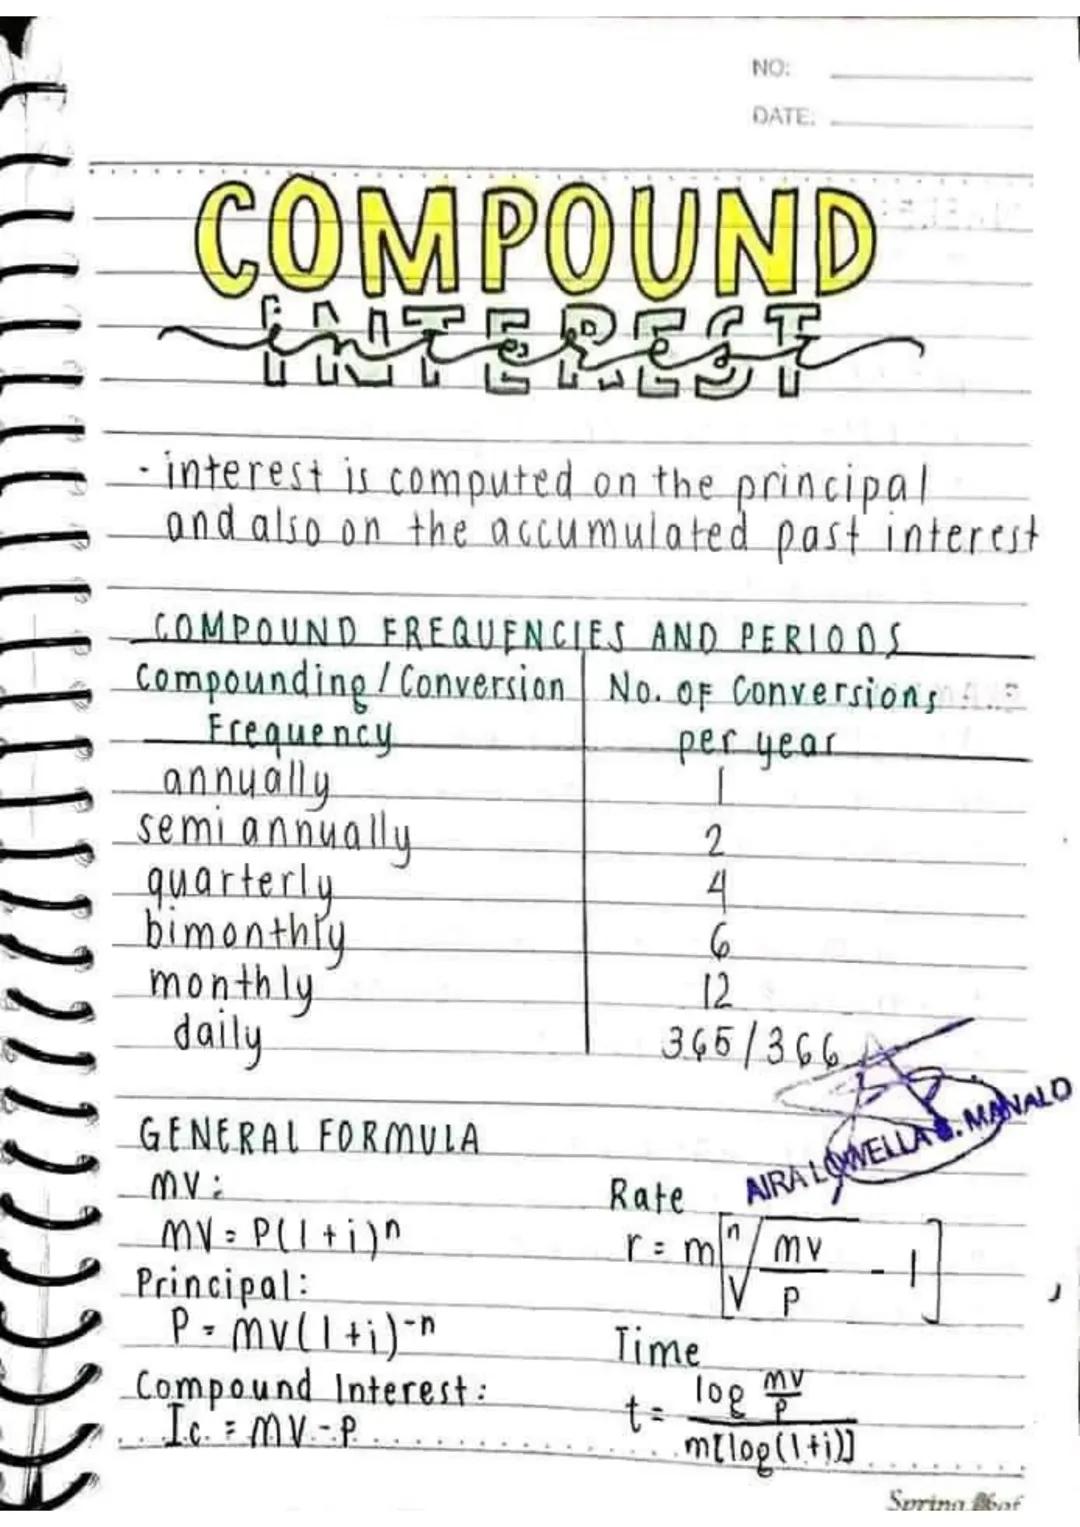 NO:
DATE:
COMPOUND
INTEREST
interest
- interest is computed on the principal
and also on the accumulated past interest
COMPOUND FREQUENCIES AND PERIODS
Compounding / Conversion Frequency | No. of Conversions per year
annually 1
semi annually 2
quarterly 4
bimonthly 6
monthly 12
daily 365/366
AIRA LOWELLA MANALO
GENERAL FORMULA
MV:
MV = P(1+i)^n
Principal:
P = MV(1+i)^-n
Compound Interest:
Ic = MV - P
Rate
r = m[ⁿ√(MV/P) - 1]
Time
t = log MV/P / m[log(1+i)]
Spring